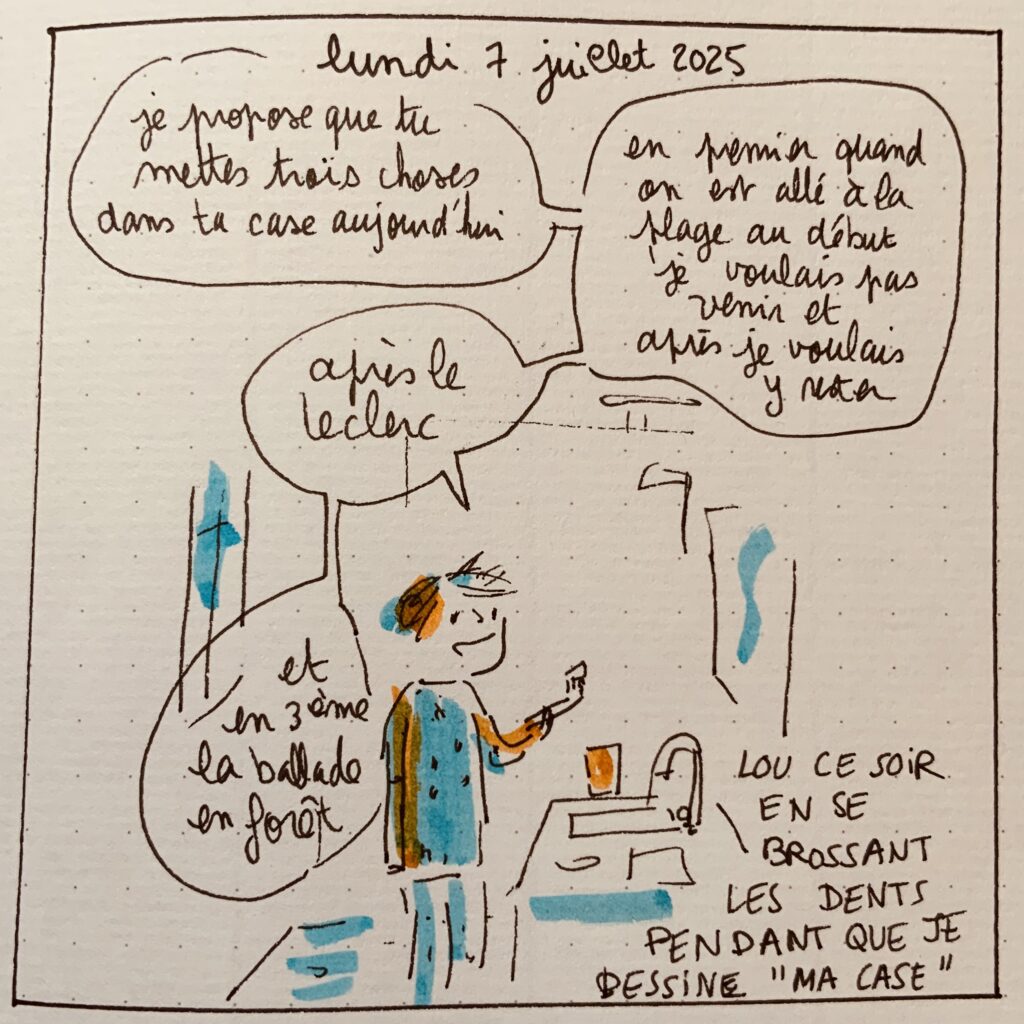 lundi 7 juillet 2025
je propose que tu
mettes trois choses
dans ta case aujourd'hui
en premier quand
on est allé à la
plage au début
je voulais pas
venir et
après je voulais
y rester
après le
Leclerc
et
en 3ème
la ballade
en forêt
LOU CE SOIR
EN SE
BROSSANT
LES DENTS
PENDANT QUE JE
DESSINE "MA CASE"